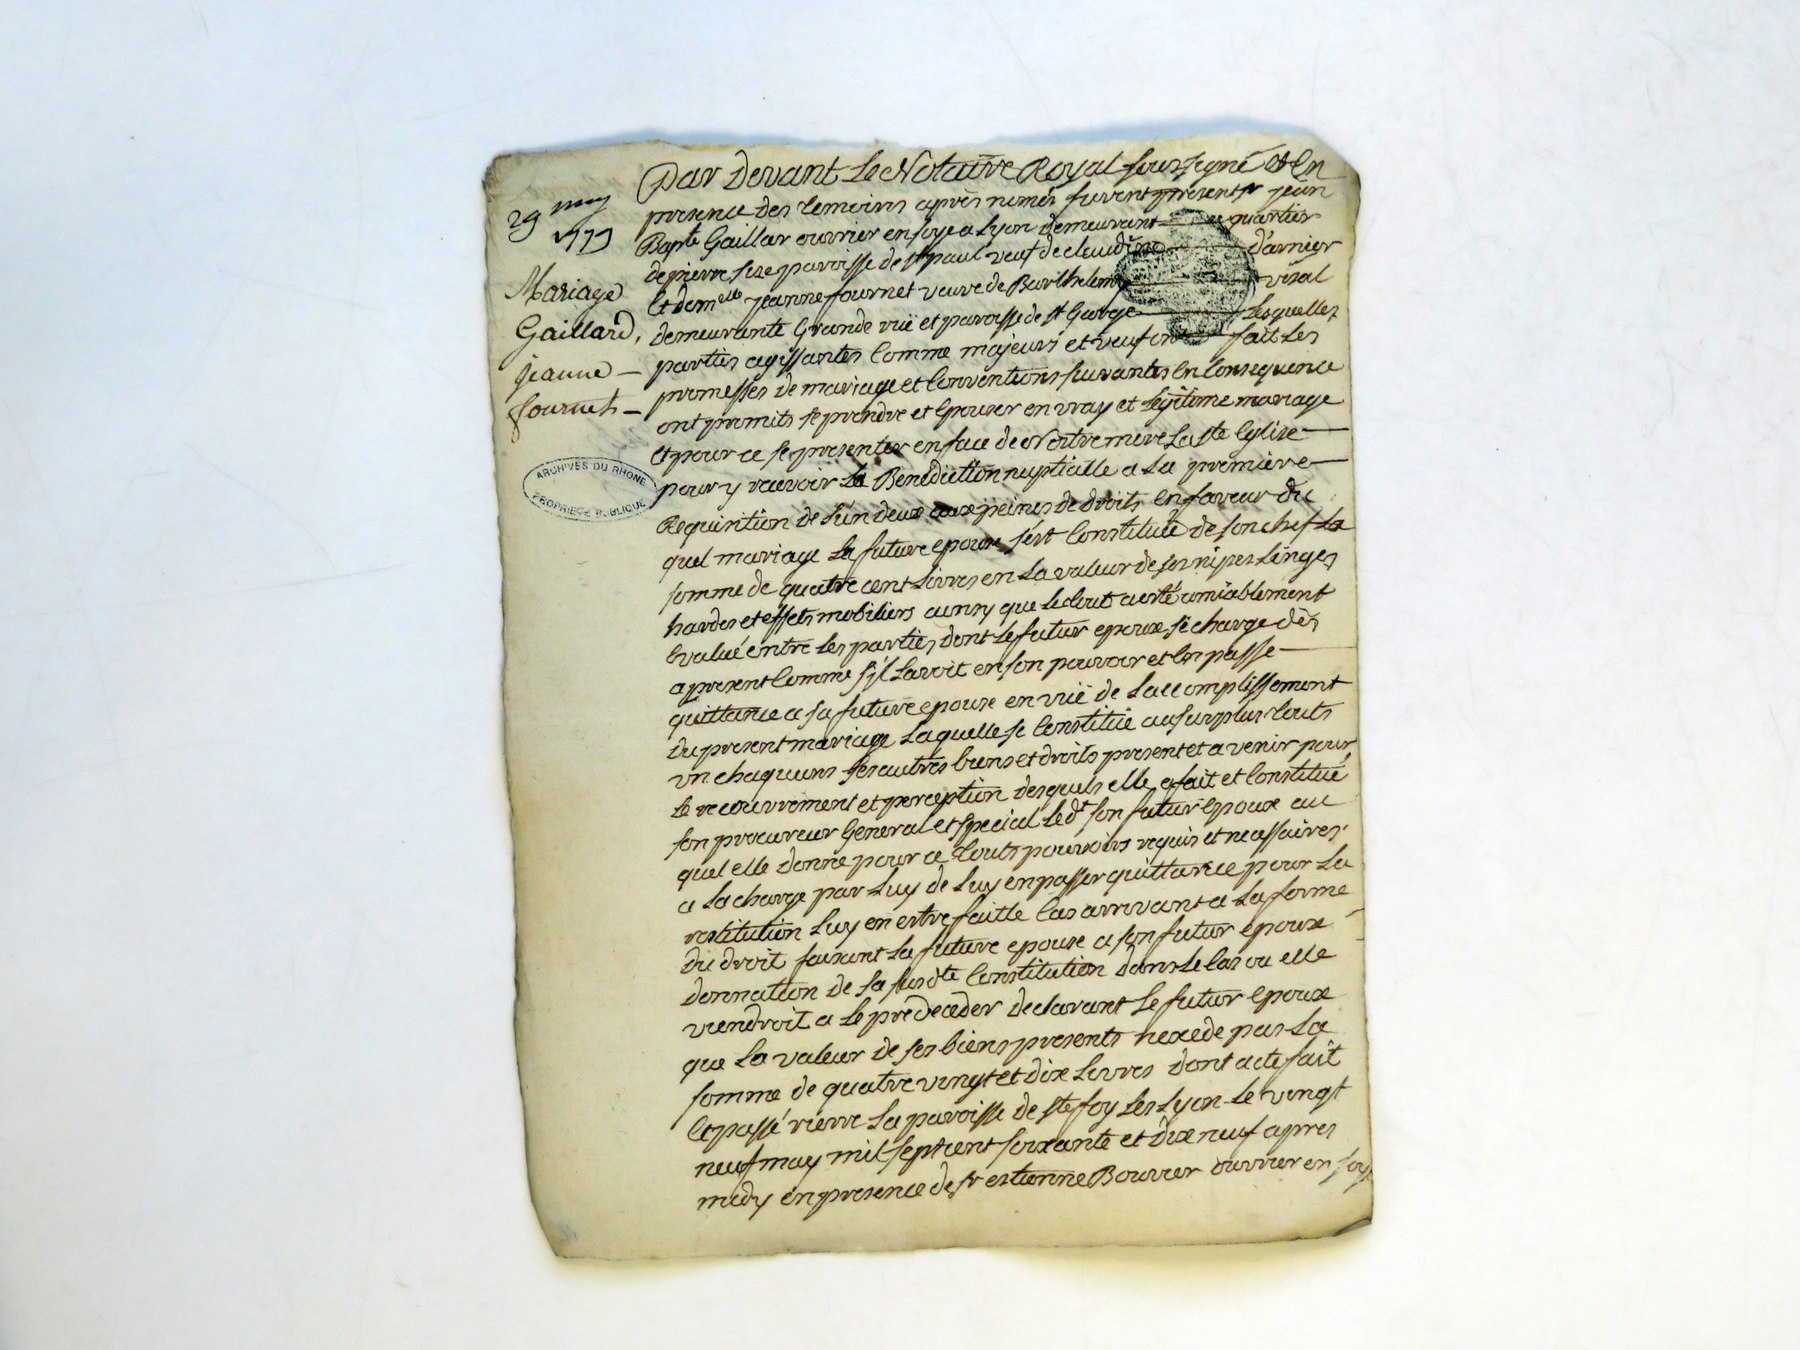 29 may
1779
Mariage
Gaillard,
jeanne —
fournet —
ARCHIVES DU RHONE
PROPRIETE PUBLIQUE
Par Devant Le Notaire Royal sousigné Et En
presence des temoins après només furent presents jean
Bapte Gaillar ouvrier en soye a Lyon demeurant quartier
de pierre size paroisse de st paul veuf de claudine d'arnier
Et demelle jeanne fournet veuve de Barthelemy vial
demeurante Grande ruë et paroisse de st George Lesquelles
parties agissantes Comme majeurs et veuf ont fait Les
promesses de mariage et Conventions suivantes En Consequence
ont promits se prendre et Epouser en vray et Legitime mariage
Et pour ce se presenter en face de Nostre mere La ste Eglise
pour y recevoir La Benediction nuptialle a La premiere
Requisition de L'un deux aux peines de droits En faveur du
quel mariage La future epouse s'est Constituée de son chef La
somme de quatre cent Livres en La valeur de ses nipes Linges
hardes et effets mobiliers aunsy que le tout a esté amiablement
Evalué entre Les parties dont Le futur epoux se charge dès
apresent Comme s'il Lavoit en son pouvoir et En passe
quittance a sa future epouse en vuë de Laccomplissement
du present mariage Laquelle se Constitüe au surplus touts
vn chaquuns ses autres biens et droits present et a venir pour
Le recouvrement et perception desquels elle a fait et Constitué
son procureur General et special Led't son futur Epoux au
quel elle donne pour ce touts pouvoirs requis et necessaires
a La charge par Luy de Luy en passer quittance pour La
restitution Luy en estre faitte Cas arrivant a La forme
du droit faisant La future epouse a son futur epoux
donnation de sa susdte Constitution dans Le Cas ou elle
viendroit a Le predeceder declarant Le futur Epoux
que La valeur de ses biens presents nexede pas La
somme de quatre vingt et dix Livres dont acte fait
Et passé riere La paroisse de ste foy Les Lyon Le vingt
neuf may mil sept cent soixante et dix neuf apres
midy en presence de sr estienne Bouvier ouvrier en soye